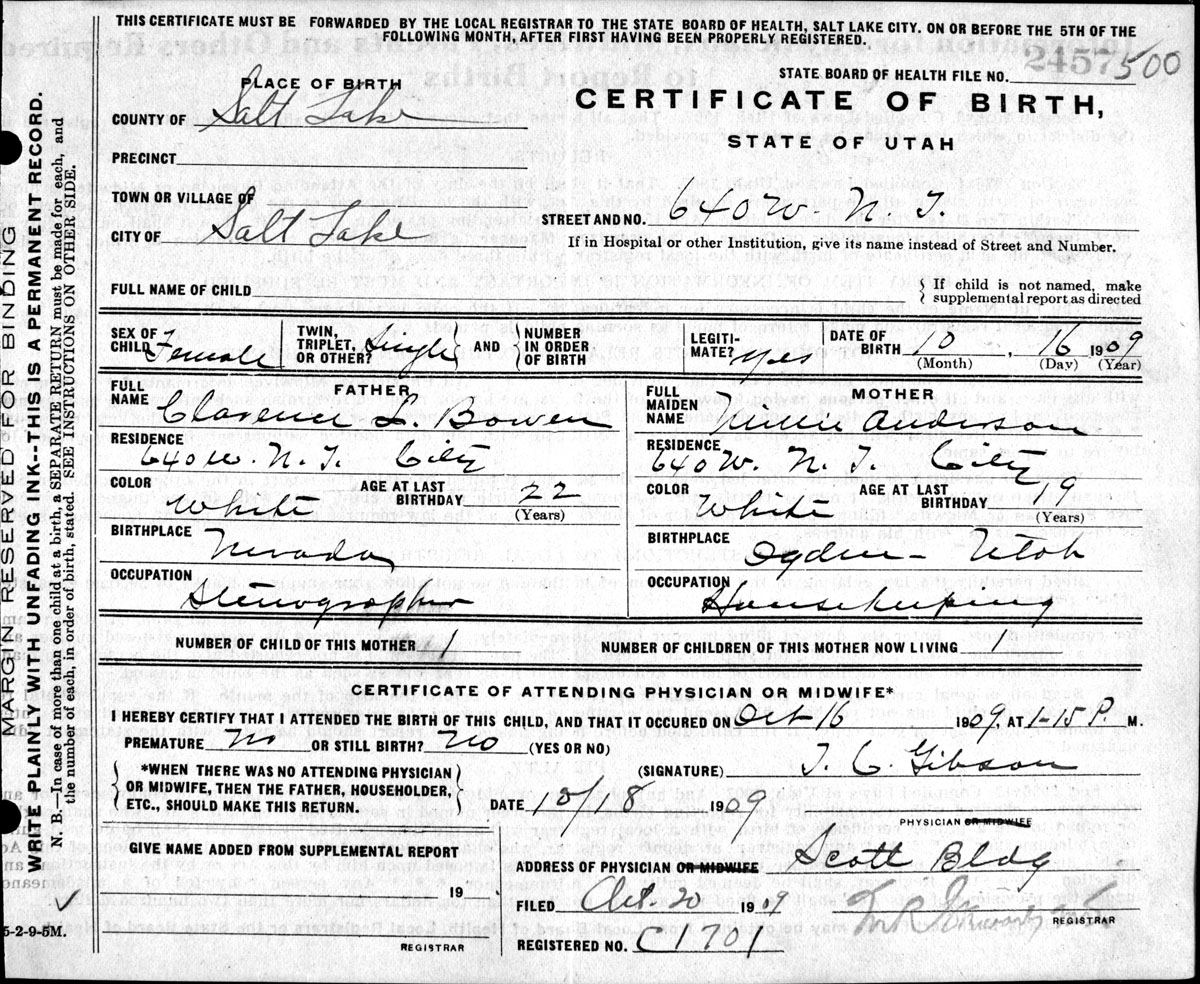 THIS CERTIFICATE MUST BE FORWARDED BY THE LOCAL REGISTRAR TO THE STATE BOARD OF HEALTH, SALT LAKE CITY. ON OR BEFORE THE 5TH OF THE
FOLLOWING MONTH, AFTER FIRST HAVING BEEN PROPERLY REGISTERED.
PLACE OF BIRTH
STATE BOARD OF HEALTH FILE NO. 500
COUNTY OF Salt Lake
CERTIFICATE OF BIRTH,
STATE OF UTAH
PRECINCT
TOWN OR VILLAGE OF
STREET AND NO. 640 W. N. T.
CITY OF Salt Lake
If in Hospital or other Institution, give its name instead of Street and Number.
FULL NAME OF CHILD
{ If child is not named, make
supplemental report as directed
SEX OF CHILD Female
TWIN, TRIPLET, OR OTHER? Single AND { NUMBER IN ORDER OF BIRTH
LEGITIMATE? Yes
DATE OF BIRTH 10, 16 1909
(Month) (Day) (Year)
FATHER
FULL NAME Clarence L. Bowen
RESIDENCE
640 W. N. T. City
COLOR White AGE AT LAST BIRTHDAY 22
(Years)
BIRTHPLACE
Nevada
OCCUPATION
Stenographer
MOTHER
FULL MAIDEN NAME Minnie Anderson
RESIDENCE
640 W. N. T. City
COLOR White AGE AT LAST BIRTHDAY 19
(Years)
BIRTHPLACE
Ogden - Utah
OCCUPATION
Housekeeping
NUMBER OF CHILD OF THIS MOTHER 1 NUMBER OF CHILDREN OF THIS MOTHER NOW LIVING 1
CERTIFICATE OF ATTENDING PHYSICIAN OR MIDWIFE*
I HEREBY CERTIFY THAT I ATTENDED THE BIRTH OF THIS CHILD, AND THAT IT OCCURED ON Oct 16 1909. AT 1-15 P. M.
PREMATURE No OR STILL BIRTH? No (YES OR NO)
{ *WHEN THERE WAS NO ATTENDING PHYSICIAN
OR MIDWIFE, THEN THE FATHER, HOUSEHOLDER,
ETC., SHOULD MAKE THIS RETURN. }
(SIGNATURE) T. C. Gibson
DATE 10/18 1909
PHYSICIAN OR MIDWIFE
GIVE NAME ADDED FROM SUPPLEMENTAL REPORT
19
REGISTRAR
ADDRESS OF PHYSICIAN OR MIDWIFE Scott Bldg
FILED Oct. 20 1909
REGISTRAR
REGISTERED NO. C1701
MARGIN RESERVED FOR BINDING
WRITE PLAINLY WITH UNFADING INK--THIS IS A PERMANENT RECORD.
N. B.—In case of more than one child at a birth, a SEPARATE RETURN must be made for each, and
the number of each, in order of birth, stated. (SEE INSTRUCTIONS ON OTHER SIDE.
5-2-9-5M.